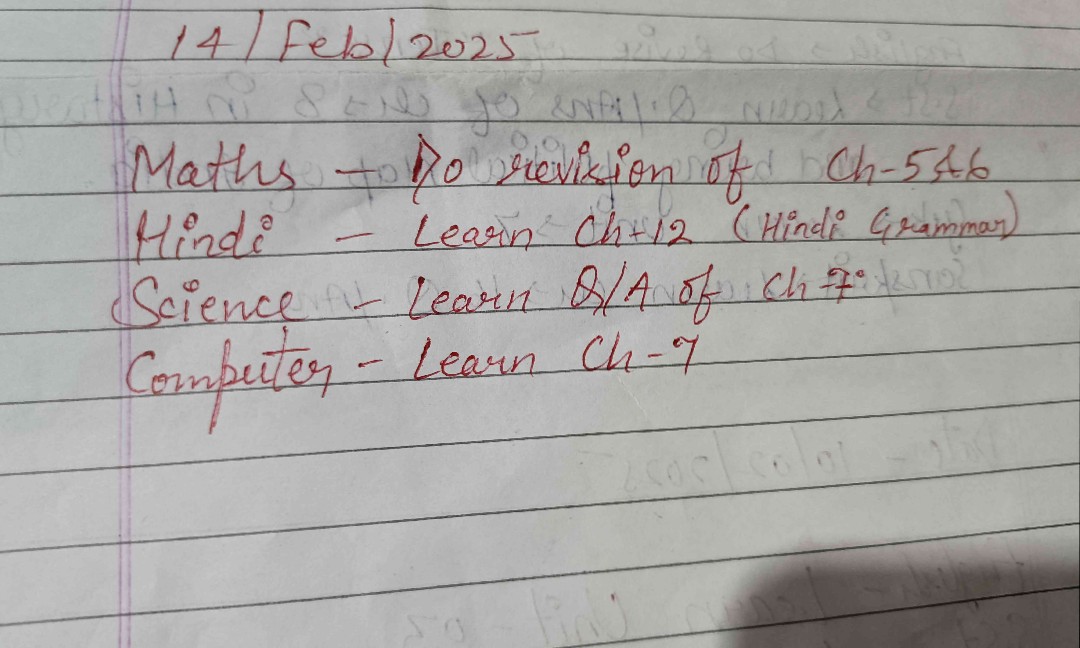 14/Feb/2025
Maths - Do revision of Ch-5&6
Hindi - Learn Ch-12 (Hindi Grammar)
Science - Learn Q/A of Ch-7
Computer - Learn Ch-7